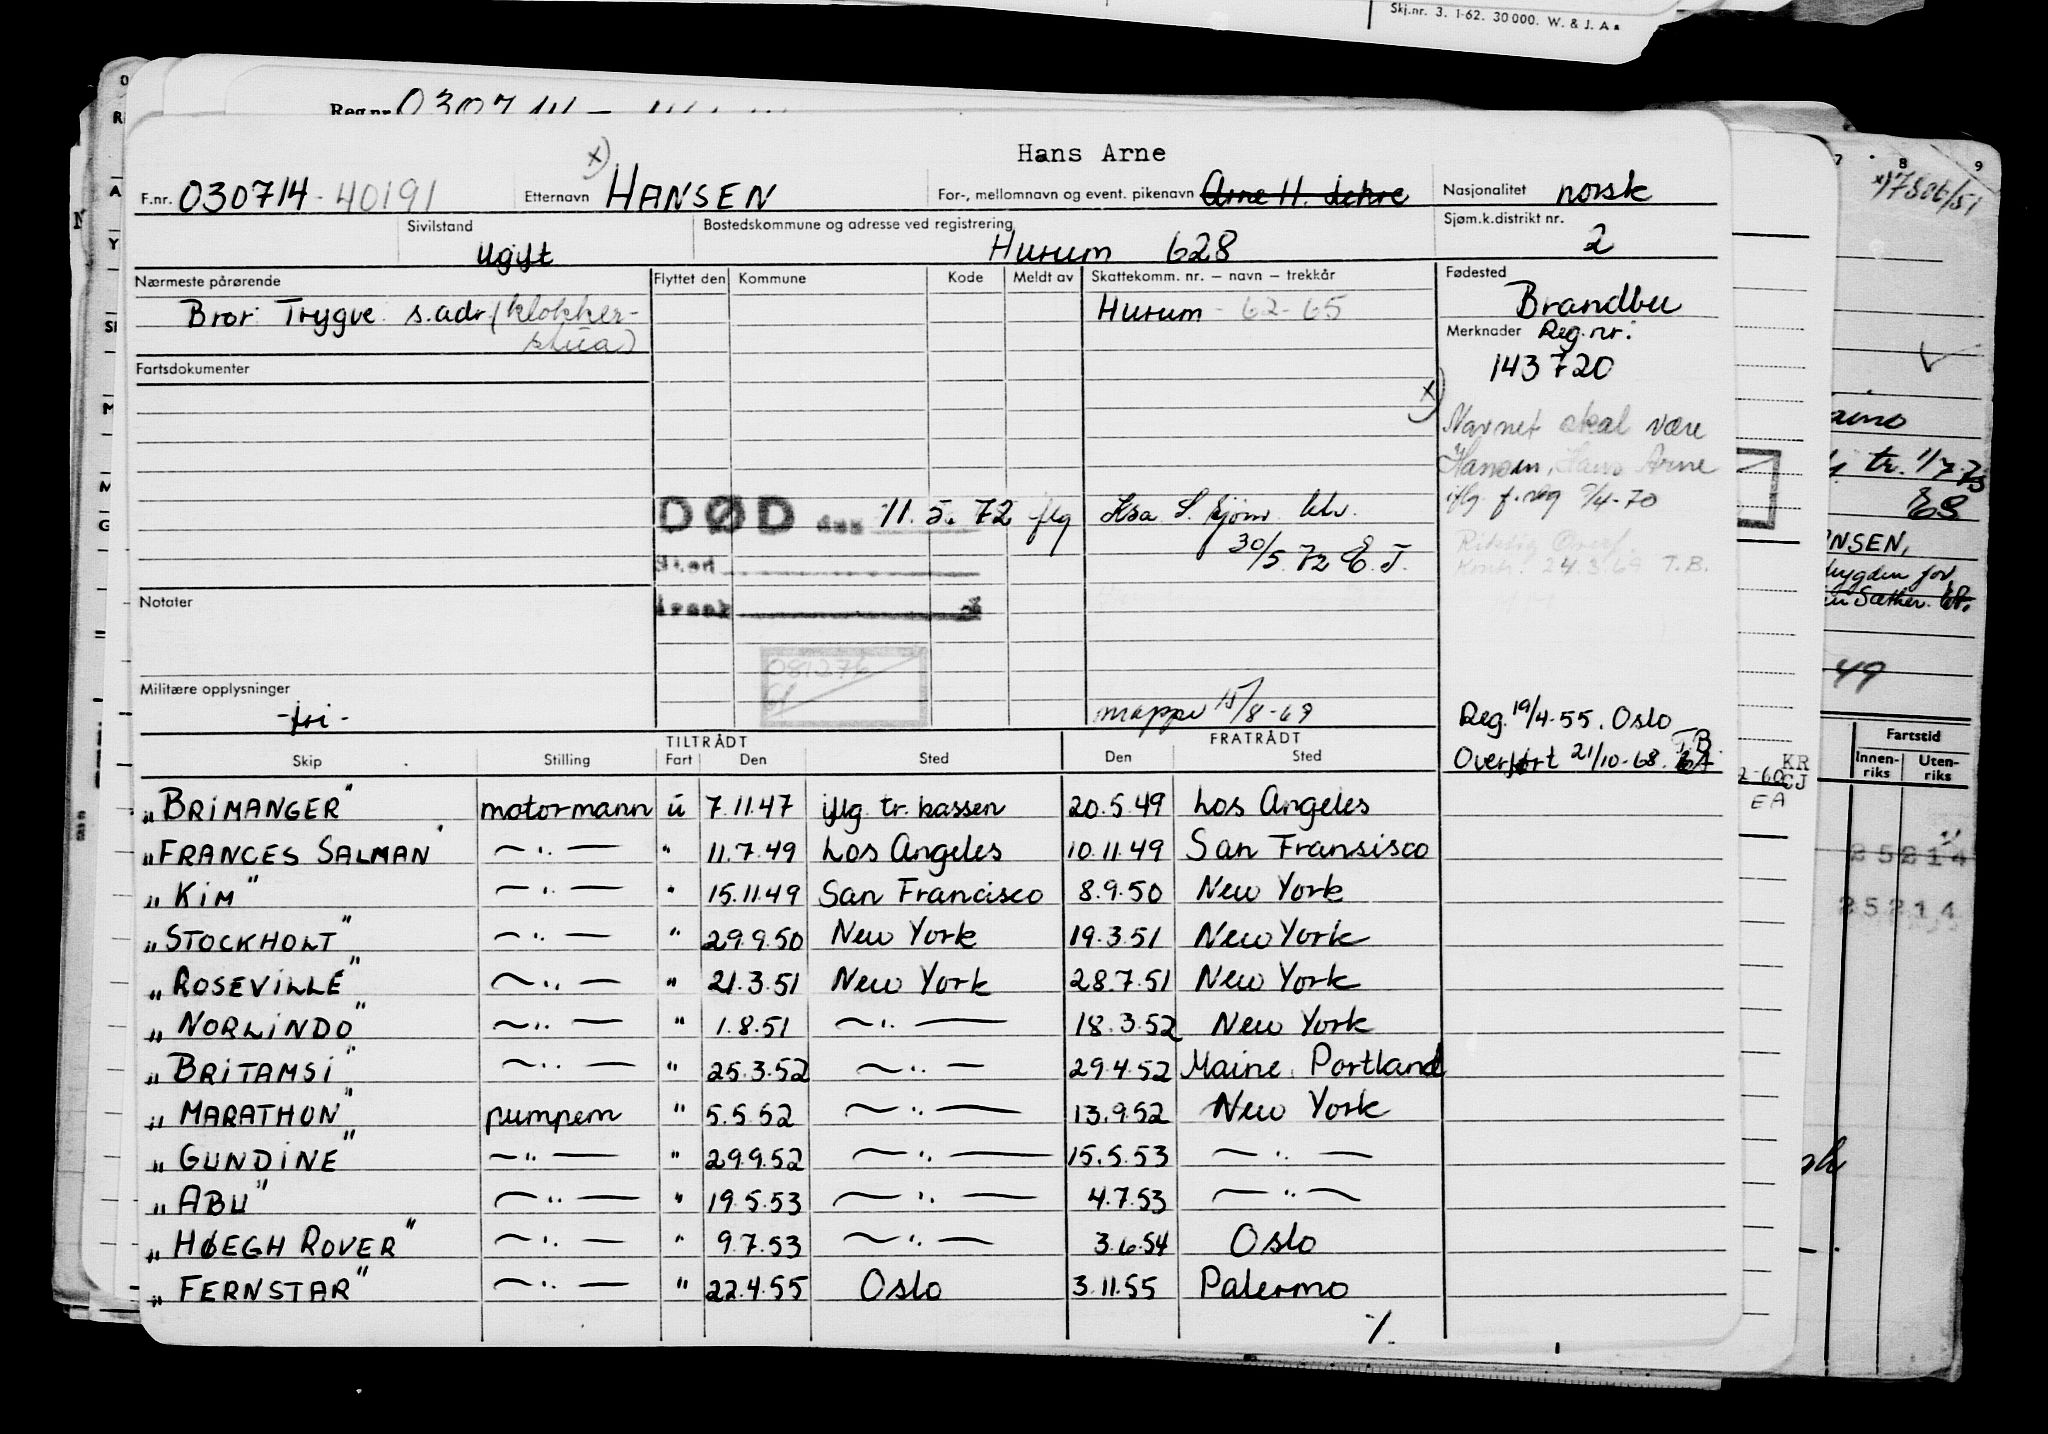 Skj.nr. 3. 1-62. 30000. W. & J. A s
Reg.nr.
Hans Arne
x)
F.nr. 030714-40191 Etternavn HANSEN For-, mellomnavn og event. pikenavn Arne H. Nasjonalitet norsk
Sivilstand Ugift Bostedskommune og adresse ved registrering Hurum 628 Sjøm.k.distrikt nr. 2
Nærmeste pårørende Flyttet den Kommune Kode Meldt av Skattekomm. nr. – navn – trekkår Fødested
Bror Trygve s.adr. (klokker-
stua)
Hurum - 62-65
Brandbu
Merknader Reg.nr.
143720
Fartsdokumenter
x)
Navnet skal være
Hansen, Hans Arne
iflg. f.reg 9/4-70
DØD den 11.5.72 iflg
30/5.72 E.T.
24.3.69 T.B.
Sted
Årsak
Notater
081276
Militære opplysninger
-fri-
mappe 15/8-69
Reg. 19/4-55. Oslo
Overført 21/10-68. T.B.
TILTRÅDT FRATRÅDT
Skip Stilling Fart Den Sted Den Sted
„BRIMANGER" motormann u 7.11.47 iflg. tr. kassen 20.5.49 Los Angeles
„FRANCES SALMAN" —"— " 11.7.49 Los Angeles 10.11.49 San Fransisco
„KIM" —"— " 15.11.49 San Francisco 8.9.50 New York
„STOCKHOLT" —"— " 29.9.50 New York 19.3.51 New York
„ROSEVILLE" —"— " 21.3.51 New York 28.7.51 New York
„NORLINDO" —"— " 1.8.51 —"— 18.3.52 New York
„BRITAMSI" —"— " 25.3.52 —"— 29.4.52 Maine. Portland
„MARATHON" pumpem " 5.5.52 —"— 13.9.52 New York
„GUNDINE" —"— " 29.9.52 —"— 15.5.53 —"—
„ABU" —"— " 19.5.53 —"— 4.7.53 —"—
„HØEGH ROVER" —"— " 9.7.53 —"— 3.6.54 Oslo
„FERNSTAR" —"— " 22.4.55 Oslo 3.11.55 Palermo
./.
7 8 9
x17806/51
tr. 1/7-73
NSEN,
49
Fartstid
Innen-
riks
Uten-
riks
KR
CJ
EA
25214
25214